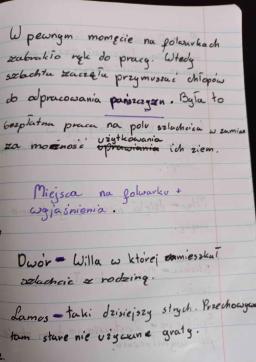 W pewnym momęcie na folwarkach
zabrakło rąk do pracy. Wtedy
szlachta zaczęła przymuszać chłopów
do odpracowania pańszczyzn. Była to
bezpłatna praca na polu szlachcica w zamian
za możność użytkowania ich ziem.
Miejsca na folwarku +
wyjaśnienia.
Dwór - Willa w której zamieszkał
szlachcic z rodziną.
Lamos - taki dzisiejszy strych. Przechowywa
tam stare nie używane graty.